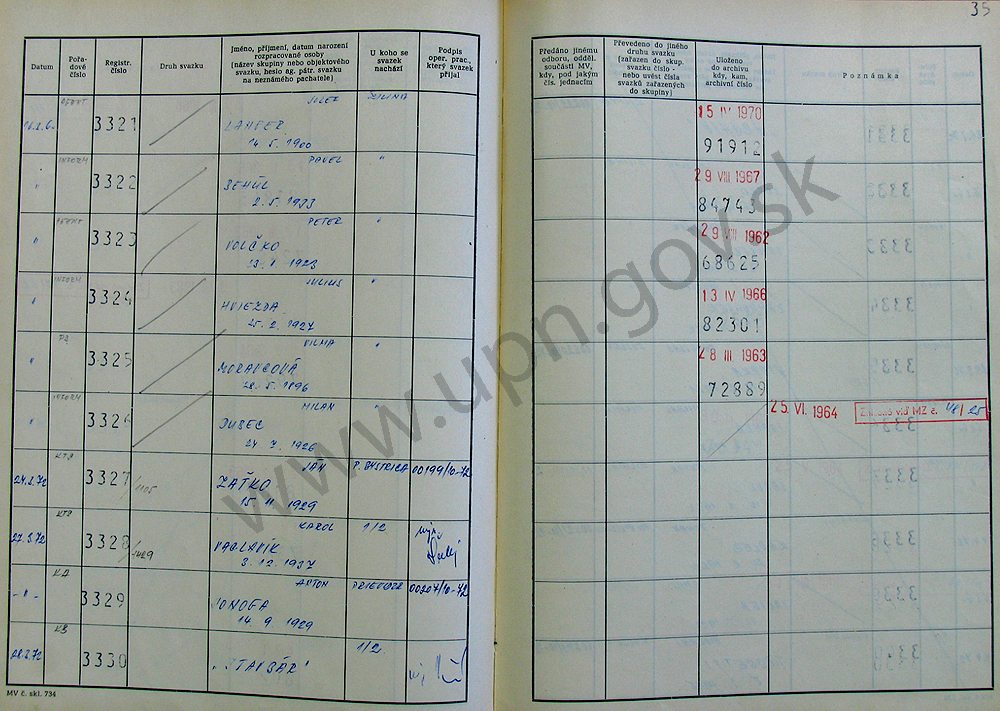 35
Datum
Pořadové číslo
Registr. číslo
Druh svazku
Jméno, příjmení, datum narození
rozpracované osoby
(název skupiny nebo objektového
svazku, heslo ag. pátr. svazku
na neznámého pachatele)
U koho se
svazek
nachází
Podpis
oper. prac.,
který svazek
přijal
Předáno jinému
odboru, odděl.
součásti MV,
kdy, pod jakým
čís. jednacím
Převedeno do jiného
druhu svazku
(zařazen do skup.
svazku číslo -
nebo uvést čísla
svazků zařazených
do skupiny)
Uloženo
do archivu
kdy, kam,
archivní číslo
Poznámka
3321
JOZEF
ŽILINA
14. 5. 1900
15 IV 1970
91912
INFORM
"
3322
PAVEL
"
2. 5. 1933
29 VIII 1967
84743
"
3323
PETER
"
VOLČKO
1923
29 VIII 1962
68625
INFORM
"
3324
JULIUS
"
HVIEZDA
25. 2. 1927
13 IV 1966
82301
"
3325
VILMA
"
MORAVCOVÁ
28. 5. 1896
28 III 1963
72889
INFORM
"
3326
MILAN
"
DUSEC
24. 7. 1926
25. VI. 1964
viď MZ č. 48/25
24.2.72
3327
1105
JÁN
ŽAŤKO
15. 11. 1929
P. BYSTRICA
00199/10-72
27.3.72
3328
1429
KAROL
VACLAVÍK
3. 12. 1937
1/2
- " -
3329
ANTON
JONOGA
14. 9. 1929
PRIEVIDZA
00207/10-72
28.2.72
3330
1/2
MV č. skl. 734
www.upn.gov.sk